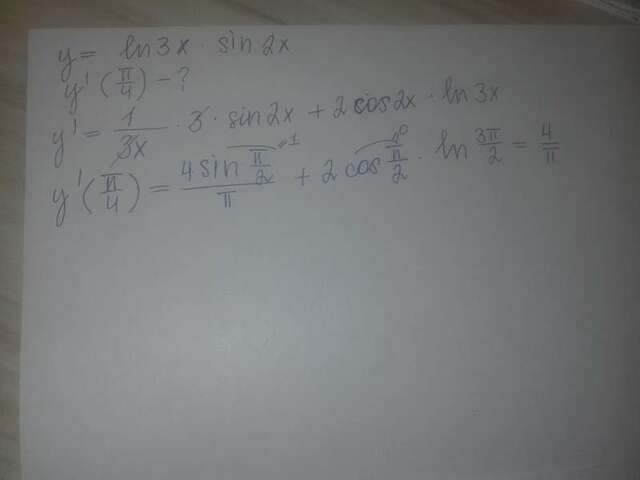 y = ln3x · sin 2x
y'(π/4) - ?
y' = 1/3x · 3 · sin2x + 2cos2x · ln 3x
y'(π/4) = 4 sin π/2 =1 / π + 2 cos π/2 =0 · ln 3π/2 = 4/π